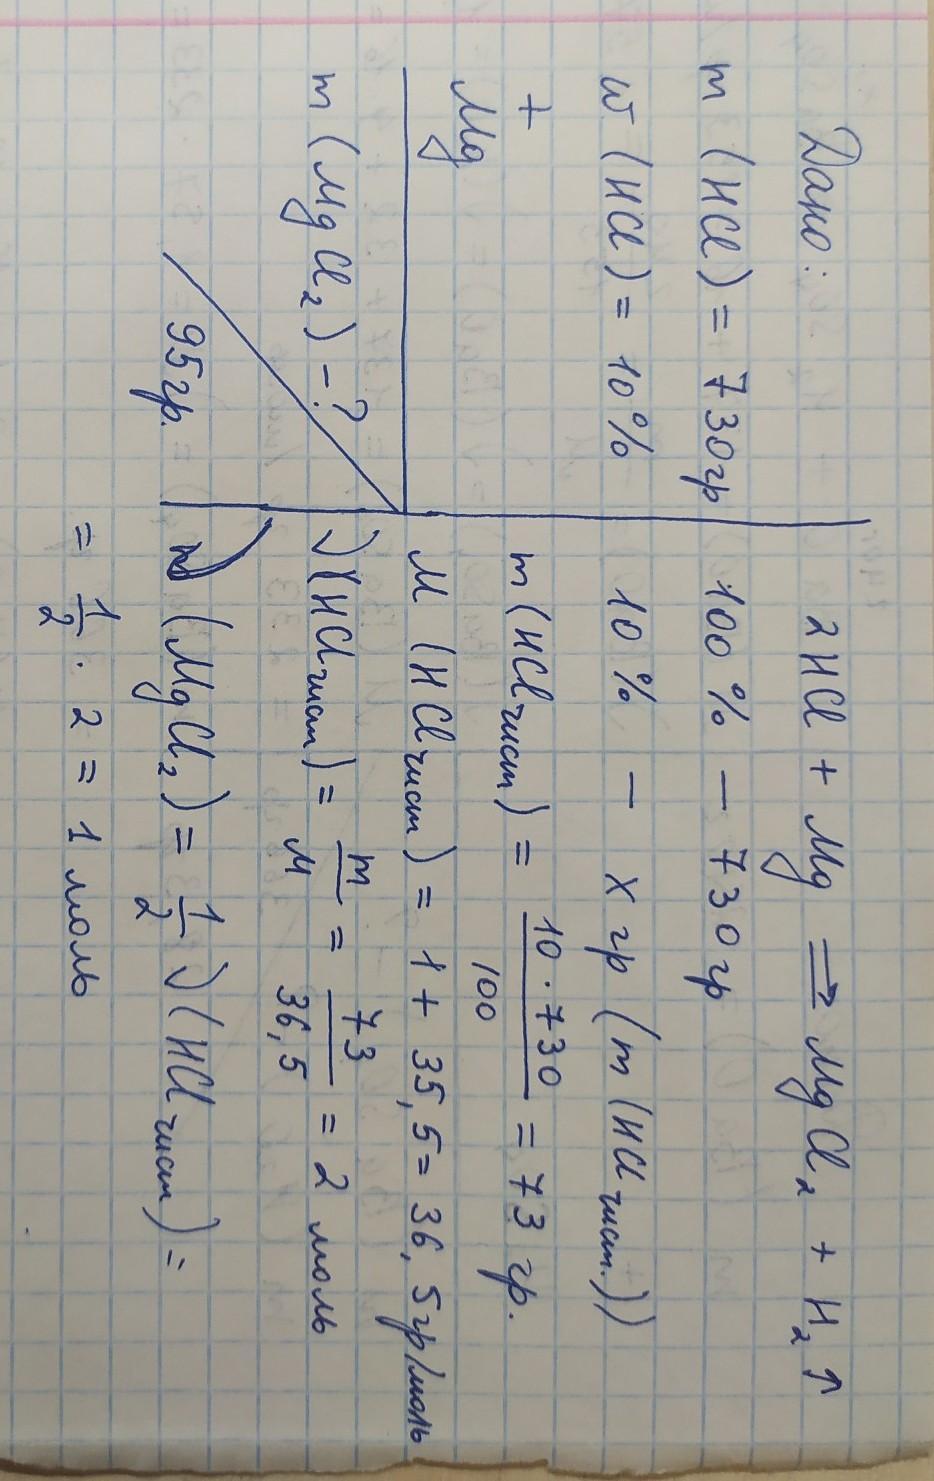 Дано:
m (HCl) = 730гр
w (HCl) = 10%
+
Mg
m (MgCl₂) - ?
95гр.
2HCl + Mg ⇒ MgCl₂ + H₂↑
100% — 730гр
10% — x гр (m (HCl чист.))
m(HCl чист) = 10 · 730 / 100 = 73 гр.
M (HCl чист) = 1 + 35,5 = 36,5гр/моль
ν(HCl чист) = m / M = 73 / 36,5 = 2 моль
ν (MgCl₂) = 1/2 ν (HCl чист) =
= 1/2 · 2 = 1 моль